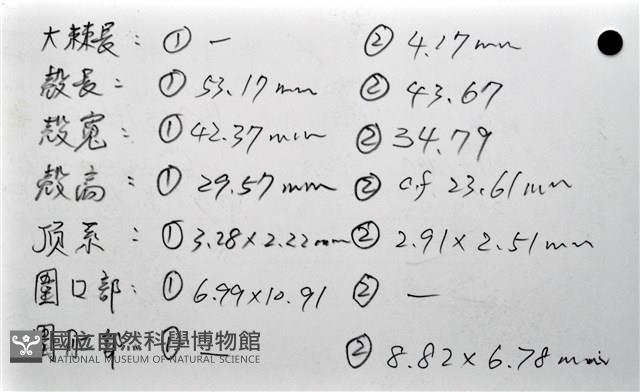 大棘長: ① — ② 4.17mm
殼長: ① 53.17mm ② 43.67
殼寬: ① 42.37mm ② 34.79
殼高: ① 29.57mm ② cf 23.61mm
顶系: ① 3.28×2.22mm ② 2.91×2.51mm
圍口部: ① 6.99×10.91 ② —
圍肛部 ① — ② 8.82×6.78mm
國立自然科學博物館
NATIONAL MUSEUM OF NATURAL SCIENCE